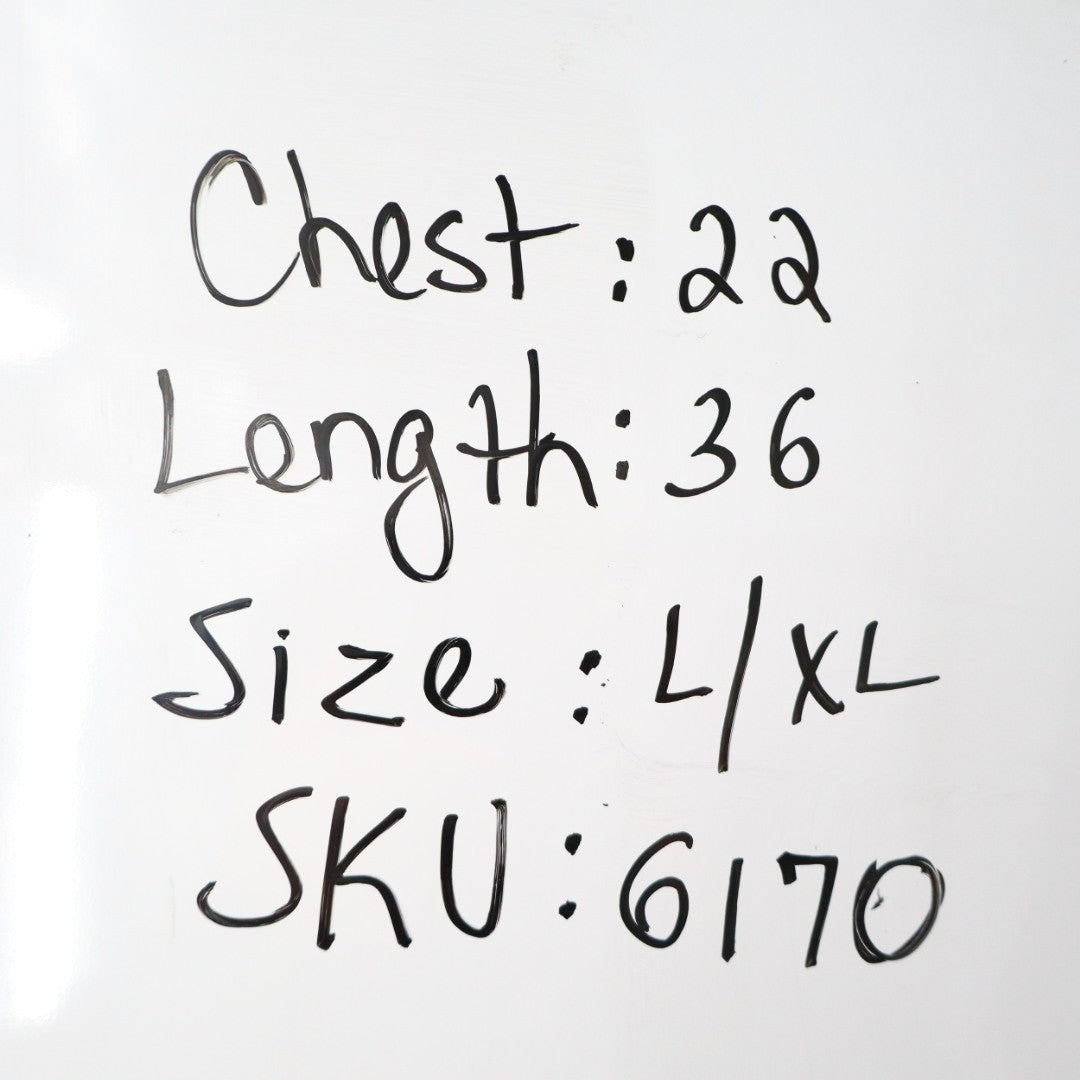 Chest: 22
Length: 36
Size: L/XL
SKU: 6170